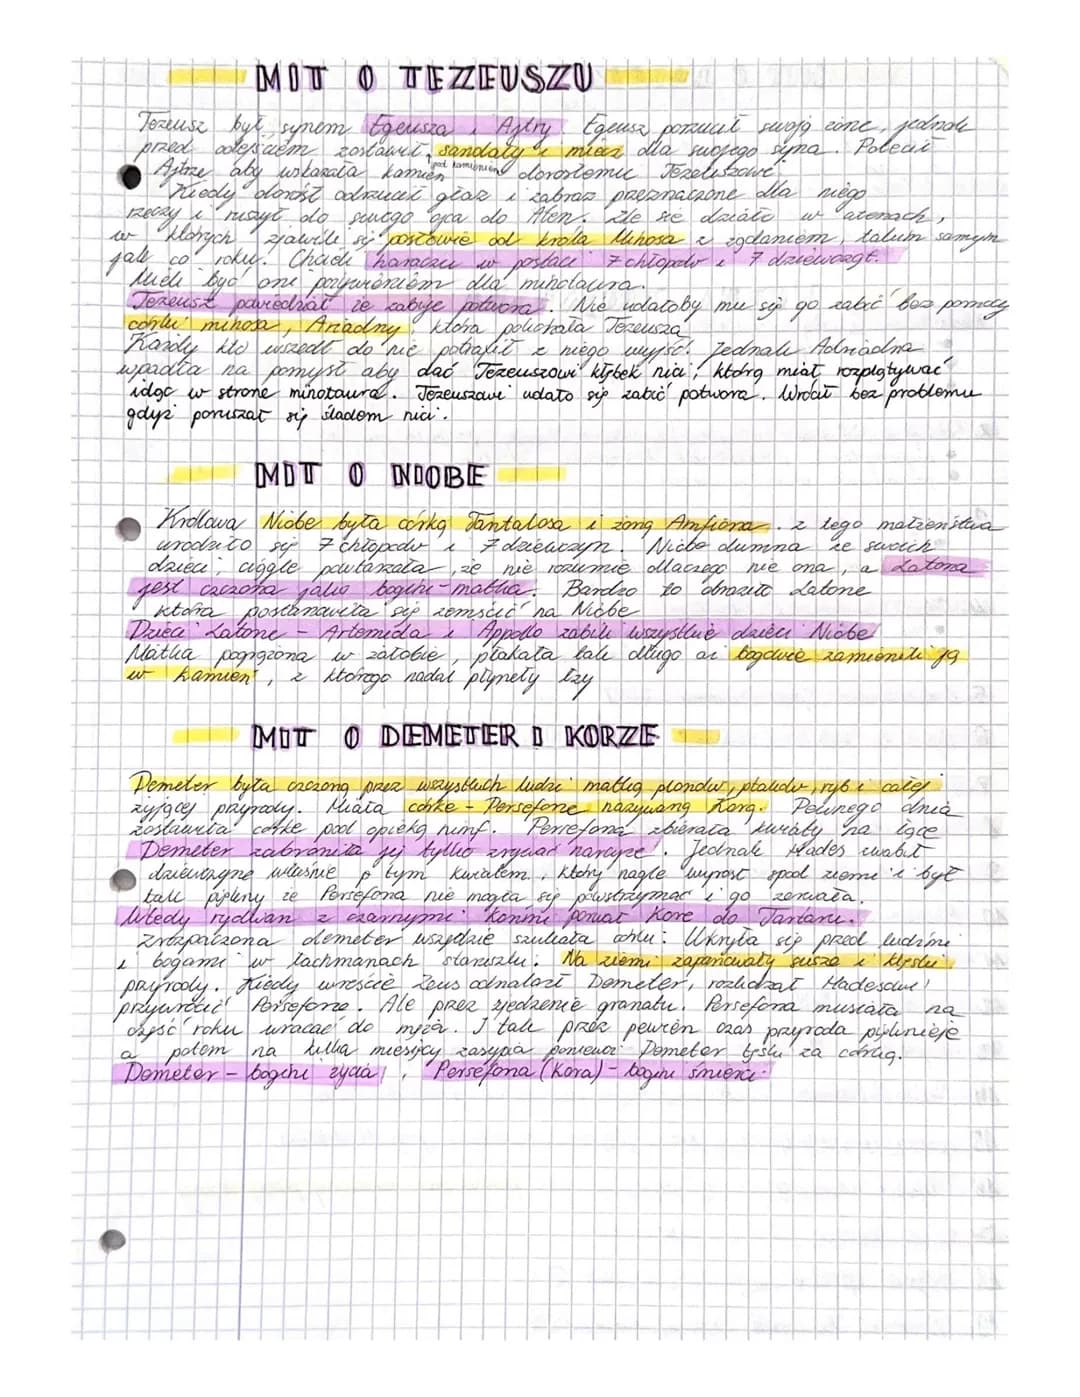 MIT O TEZEUSZU
Tezeusz był synem Egeusza i Ajtry. Egeusz porzucił swoją żonę, jednak
przed odejściem zostawił pod kamieniem sandały i miecz dla swojego syna. Polecił
Ajtrze aby wskazała kamień dorosłemu Tezeuszowi
Kiedy dorósł odrzucił głaz i zabrał przeznaczone dla niego
rzeczy i ruszył do swego ojca do Aten. Źle się działo w atenach,
w których zjawili się posłowie od króla Minosa z żądaniem, takim samym
jak co roku. Chcieli haraczu w postaci 7 chłopców i 7 dziewcząt.
Mieli być oni pożywieniem dla minotaura.
Tezeusz powiedział że zabije potwora. Nie udałoby mu się go zabić bez pomocy
córki minosa, Ariadny, która pokochała Tezeusza
Każdy kto wszedł do nie potrafił z niego wyjść. Jednak Adriadna
wpadła na pomysł aby dać Tezeuszowi kłębek nici, którą miał rozplątywać
idąc w stronę minotaura. Tezeuszowi udało się zabić potwora. Wrócił bez problemu
gdyż poruszał się śladem nici.
MIT O NIOBE
Królowa Niobe była córką Tantalosa i żoną Amfiona. z tego małżeństwa
urodziło się 7 chłopców i 7 dziewczyn. Niobe dumna ze swoich
dzieci, ciągle powtarzała, że nie rozumie dlaczego nie ona, a Latona
jest czczona jako bogini-matka. Bardzo to obraziło Latone
która postanowiła się zemścić na Niobe
Dzieci Latone - Artemida i Appollo zabili wszystkie dzieci Niobe
Matka pogrążona w żałobie, płakała tak długo aż bogowie zamienili ją
w kamień, z którego nadal płynęły łzy
MIT O DEMETER I KORZE
Demeter była czczona przez wszystkich ludzi matką plonów, ptaków, ryb i całej
żyjącej przyrody. Miała córkę - Persefone nazywaną Korą. Pewnego dnia
zostawiła córkę pod opieką nimf. Persefona zbierała kwiaty na łące
Demeter zabroniła jej tylko zrywać narcyze. Jednak Hades zwabił
dziewczynę właśnie tym kwiatem, który nagle wyrósł spod ziemi i był
tak piękny że Persefona nie mogła się powstrzymać i go zerwała.
Wtedy rydwan z czarnymi końmi porwał Korę do Tartaru.
Zrozpaczona demeter wszędzie szukała córki. Ukryła się przed ludźmi
i bogami w łachmanach staruszki. Na ziemi zapanowały susza i klęski
przyrody. Kiedy wreście Zeus odnalazł Demeter, rozkazał Hadesowi
przywrócić Persefonę. Ale przez zjedzenie granatu. Persefona musiała na
część roku wracać do męża. I tak przez pewien czas przyroda pięknieje
a potem na kilka miesięcy zasypia ponieważ Demeter tęskni za córką.
Demeter - bogini życia, Persefona (Kora) - bogini śmierci.